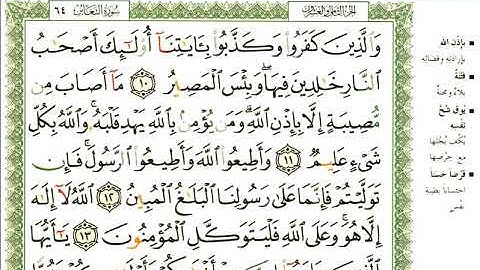 الجزء الثامن والعشرون
سُورَةُ التَّغَابُنِ ٦٤
وَٱلَّذِينَ كَفَرُوا۟ وَكَذَّبُوا۟ بِـَٔايَـٰتِنَآ أُو۟لَـٰٓئِكَ أَصْحَـٰبُ
ٱلنَّارِ خَـٰلِدِينَ فِيهَا ۖ وَبِئْسَ ٱلْمَصِيرُ ١٠ مَآ أَصَابَ مِن
مُّصِيبَةٍ إِلَّا بِإِذْنِ ٱللَّهِ ۗ وَمَن يُؤْمِنۢ بِٱللَّهِ يَهْدِ قَلْبَهُۥ ۚ وَٱللَّهُ بِكُلِّ
شَىْءٍ عَلِيمٌ ١١ وَأَطِيعُوا۟ ٱللَّهَ وَأَطِيعُوا۟ ٱلرَّسُولَ ۚ فَإِن
تَوَلَّيْتُمْ فَإِنَّمَا عَلَىٰ رَسُولِنَا ٱلْبَلَـٰغُ ٱلْمُبِينُ ١٢ ٱللَّهُ لَآ إِلَـٰهَ
إِلَّا هُوَ ۚ وَعَلَى ٱللَّهِ فَلْيَتَوَكَّلِ ٱلْمُؤْمِنُونَ ١٣ يَـٰٓأَيُّهَا
بإذن الله
بإرادته وقضائه
فتنة
بلاء ومحنة
يوق شح
نفسه
يكف بخلها
مع حرصها
قرضا حسنا
احتسابا بطيبة
نفس